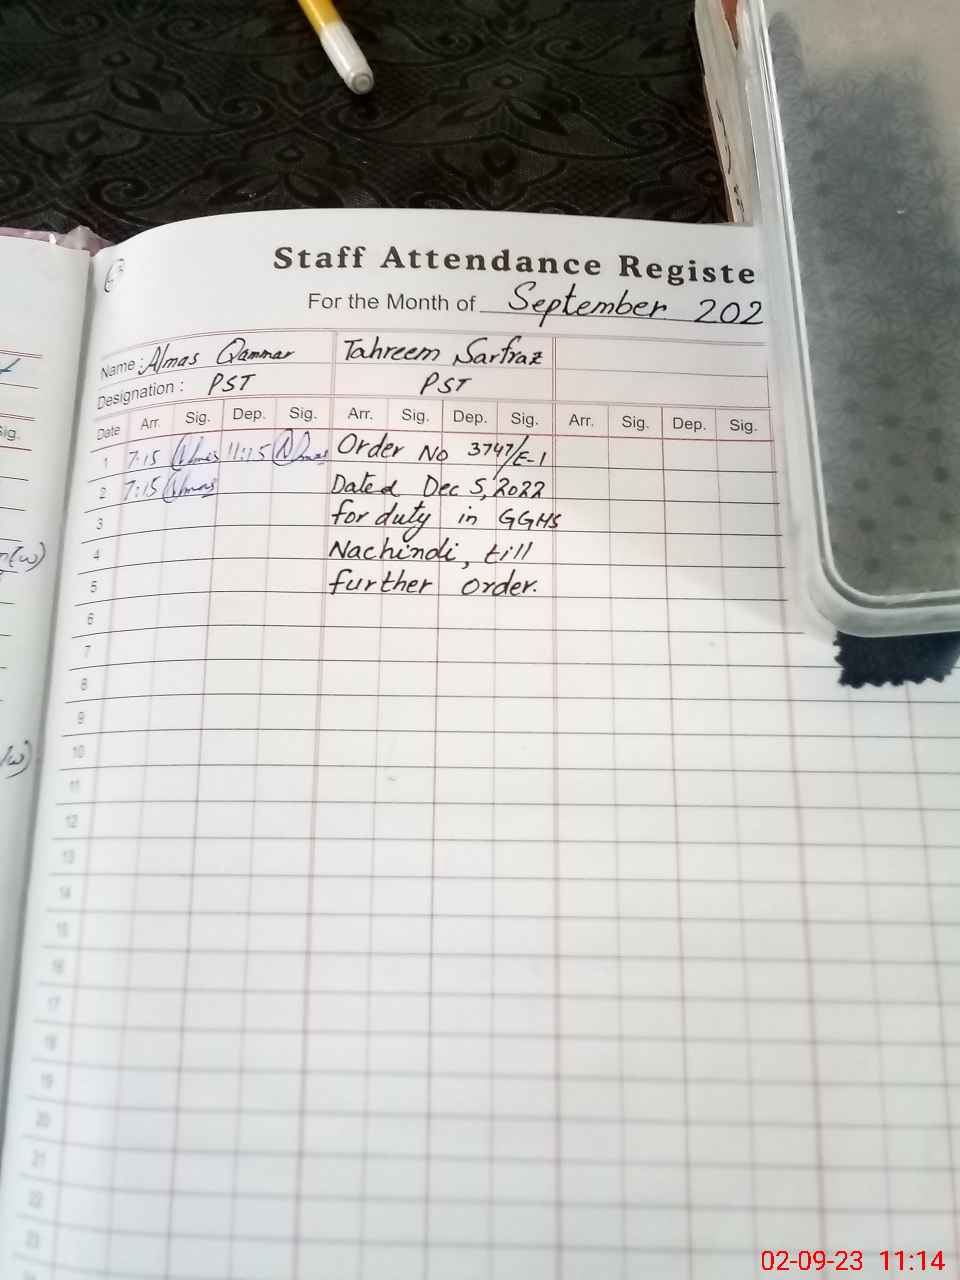 Staff Attendance Registe
For the Month of September 202
Name: Almas Qammar Tahreem Sarfraz
Designation: PST PST
Date Arr. Sig. Dep. Sig. Arr. Sig. Dep. Sig. Arr. Sig. Dep. Sig.
1 7:15 Almas 11:15 Almas Order No 3747/E-1
2 7:15 Almas Dated Dec 5, 2022
3 for duty in GGHS
4 Nachindi, till
5 further order.
6
7
8
9
10
11
12
13
14
15
16
17
18
19
20
21
22
23
ig.
(w)
(w)
02-09-23 11:14